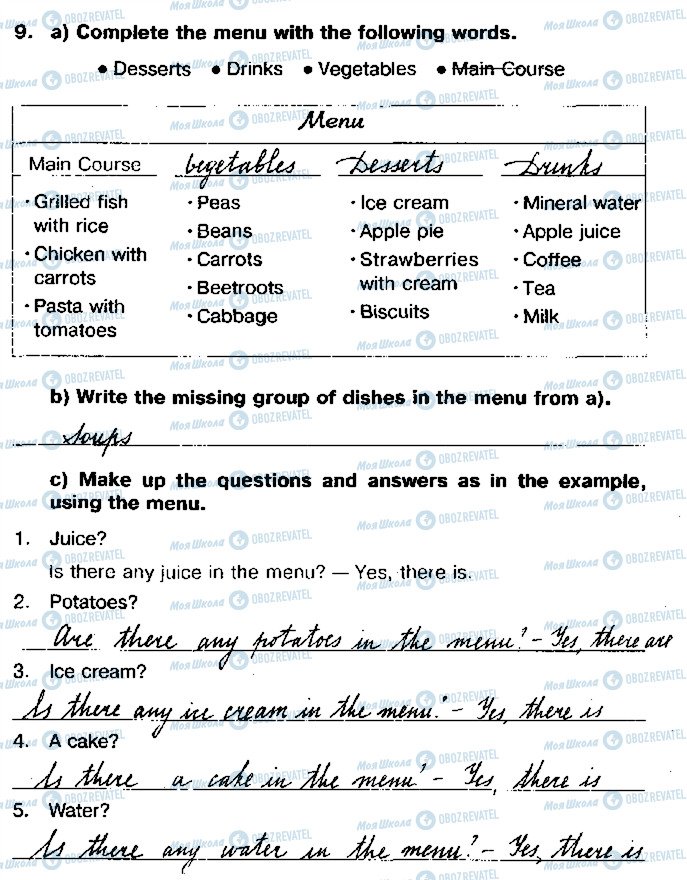 9. a) Complete the menu with the following words.
• Desserts • Drinks • Vegetables • Main Course
Menu
Main Course Vegetables Desserts Drinks
· Grilled fish with rice
· Chicken with carrots
· Pasta with tomatoes
· Peas
· Beans
· Carrots
· Beetroots
· Cabbage
· Ice cream
· Apple pie
· Strawberries with cream
· Biscuits
· Mineral water
· Apple juice
· Coffee
· Tea
· Milk
b) Write the missing group of dishes in the menu from a).
Soups
c) Make up the questions and answers as in the example,
using the menu.
1. Juice?
Is there any juice in the menu? — Yes, there is.
2. Potatoes?
Are there any potatoes in the menu? – Yes, there are
3. Ice cream?
Is there any ice cream in the menu? – Yes, there is
4. A cake?
Is there a cake in the menu? – Yes, there is
5. Water?
Is there any water in the menu? – Yes, there is
Моя Школа OBOZREVATEL